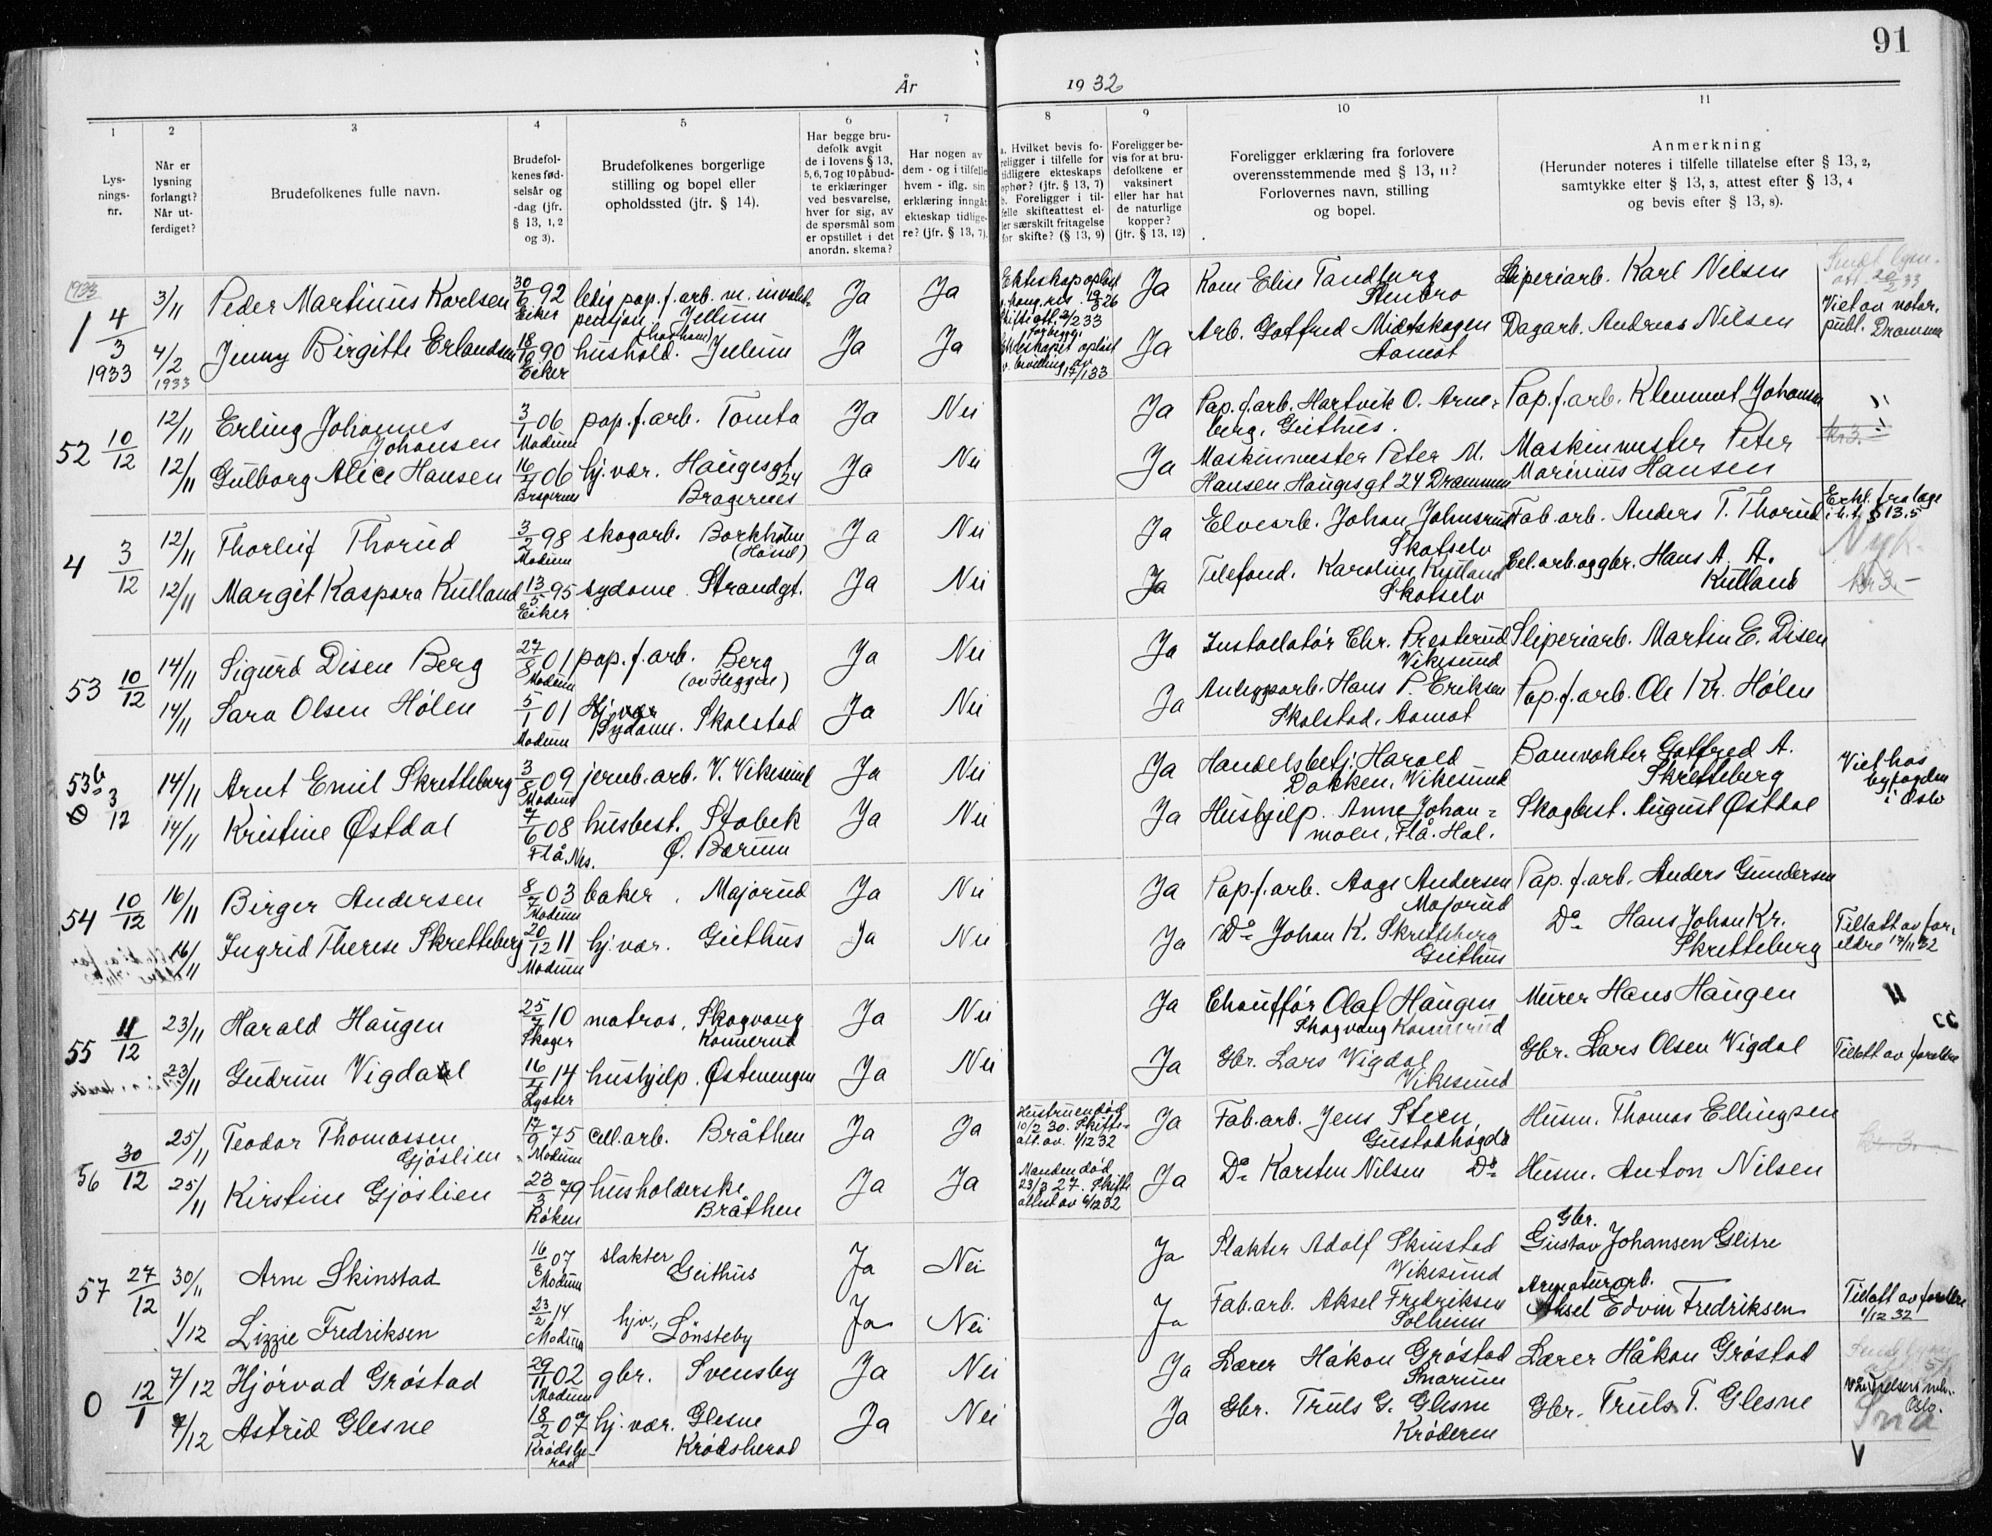 91
År 1932
1 2 3 4 5 6 7 8 9 10 11
Lys-
nings-
nr.
Når er
lysning
forlangt?
Når ut-
ferdiget?
Brudefolkenes fulle navn.
Brudefol-
kenes fød-
selsår og
-dag (jfr.
§ 13, 1, 2
og 3).
Brudefolkenes borgerlige
stilling og bopel eller
opholdssted (jfr. § 14).
Har begge bru-
defolk avgit
de i lovens § 13,
5, 6, 7 og 10 påbud-
te erklæringer
ved besvarelse,
hver for sig, av
de spørsmål som
er opstillet i det
anordn. skema?
Har nogen av
dem - og i tilfelle
hvem - iflg. sin
erklæring inngåt
ekteskap tidlige-
re? (jfr. § 13, 7).
a. Hvilket bevis fo-
religger i tilfelle for
tidligere ekteskaps
ophør? (jfr. § 13, 7)
b. Foreligger i til-
felle skifteattest el-
ler særskilt fritagelse
for skifte? (§ 13, 9)
Foreligger be-
vis for at bru-
defolkene er
vaksinert
eller har hat
de naturlige
kopper?
(jfr. § 13, 12)
Foreligger erklæring fra forlovere
overensstemmende med § 13, 11?
Forlovernes navn, stilling
og bopel.
Anmerkning
(Herunder noteres i tilfelle tillatelse efter § 13, 2,
samtykke efter § 13, 3, attest efter § 13, 4
og bevis efter § 13, 8).
1933
1 4/3 1933
3/11 Peder Martinius Karlsen 30/6 92 Eiker ledig pap.f.arb. m. invalid-
pensjon. Jellum Ja Ja
Ekteskap opløst
v. kong. res. 19/3 26
Skifteatt. 2/2 33
Ja Kone Elise Tandberg
Stenbro
Sliperiarb. Karl Nilsen
Viet av notar.
publ. Drammen
4/2 1933 Jenny Birgitte Erlandsen 18/10 90 Eiker hushold. Jellum Ja Ja
Ekteskapet opløst
v. bevilling av
17/1 33
Ja Arb. Gotfred Midtskogen
Aamot
Dagarb. Andreas Nilsen
52 10/12
12/11 Erling Johannes
Johansen 3/1 06 Modum pap.f.arb. Tomta Ja Nei
Ja Pap.f.arb. Hartvik O. Arne-
berg, Geithus.
Pap.f.arb. Klemmet Johansen
kr 3.-
12/11 Gulborg Alice Hansen 16/4 06 Bragernes hj.vær. Haugesgt
24
Bragernes Ja Nei
Ja Maskinmester Peter M.
Hansen Haugesgt 24 Drammen
Maskinmester Peter
Marinius Hansen
4 3/12
12/11 Thorleif Thorud 3/2 98 Modum skogarb. Borkholm
(Hassel) Ja Nei
Ja Elvearb. Johan Johnsrud
Skotselv
Fab.arb. Anders T. Thorud
Erkl. fra læge
i.h.t. § 13.5
12/11 Margit Kaspara Kulland 13/5 95 Eiker sydame. Strandgt. Ja Nei
Ja Telefond. Karoline Kulland
Skotselv
Cel.arb. og gbr. Hans A. A.
Kulland
Nyk.
kr 3.-
53 10/12
14/11 Sigurd Disen Berg 27/8 01 Modum pap.f.arb. Berg
(av Heggen) Ja Nei
Ja Installatør Chr. Presterud
Vikesund
Sliperiarb. Martin E. Disen
14/11 Sara Olsen Hølen 5/1 01 Modum Hj.vær
Sydame. Skolstad Ja Nei
Ja Anleggsarb. Hans P. Eriksen
Skolstad, Aamot
Pap.f.arb. Ole Kr. Hølen
53b 3/12
14/11 Arnt Emil Skretteberg 3/8 09 Modum jernb.arb. V. Vikesund Ja Nei
Ja Handelsbetj. Harald
Dokken, Vikesund
Bomvokter Gotfred A.
Skretteberg
Viet hos
byfogden
i Oslo
14/11 Kristine Østdal 7/6 08 Flå, Nes. husbest. Stabek
Ø. Bærum Ja Nei
Ja Hushjelp. Anne Johan-
moen, Flå. Hal.
Skogbest. August Østdal
54 10/12
16/11 Birger Andersen 8/7 03 Modum baker, Majorud Ja Nei
Ja Pap.f.arb. Aage Andersen
Majorud
Pap.f.arb. Anders Gundersen
16/11 Ingrid Therese Skretteberg 20/12 11 Modum hj.vær. Geithus Ja Nei
Ja Do Johan K. Skretteberg
Geithus
Do Hans Johan Kr.
Skretteberg
Tillatt av for-
eldre 17/11 32
55 11/12
23/11 Harald Haugen 25/7 10 Skoger matros, Skogvang
Konnerud Ja Nei
Ja Chauffør Olaf Haugen
Skogvang Konnerud
Murer Hans Haugen
23/11 Gudrun Vigdal 16/4 14 Lyster hushjelp. Østenengen Ja Nei
Ja Gbr. Lars Vigdal
Vikesund
Gbr. Lars Olsen Vigdal
Tillatt av foreldre
56 30/12
25/11 Teodor Thomassen
Gjøslien 17/9 75 Modum cell.arb. Bråthen Ja Ja
Hustruen død
10/2 30. Skifte-
att. av. 1/12 32
Ja Fab.arb. Jens Steen,
Gustadhøgda
Husm. Thomas Ellingsen
25/11 Kirstine Gjøslien 23/3 79 Røken husholderske
Bråthen Ja Ja
Manden død
23/3 27. Skifte
attest av 6/12 32
Ja Do Karsten Nilsen Do
Husm. Anton Nilsen
57 27/12
30/11 Arne Skinstad 16/8 07 Modum slakter
Geithus Ja Nei
Ja Slakter Adolf Skinstad
Vikesund
Gbr.
Gustav Johansen Glitre
1/12 Lizzie Fredriksen 23/2 14 Modum hjv., Lønsteby Ja Nei
Ja Fab.arb. Aksel Fredriksen
Solheim
Armaturarb.
Aksel Edvin Fredriksen
Tillatt av foreldre
1/12 32
0 12/1
7/12 Hjørvad Grøstad 29/11 02 Modum gbr. Svensby Ja Nei
Ja Lærer Håkon Grøstad
Snarum
Lærer Håkon Grøstad
7/12 Astrid Glesne 18/2 07 Krødshe-
rad hj.vær. Glesne
Krødsherad Ja Nei
Ja Gbr. Truls G. Glesne
Krøderen
Gbr. Truls T. Glesne
Oslo.
V